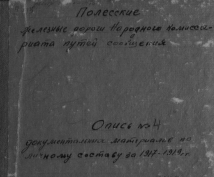 Полесские
железные дороги Народного комисса-
риата путей сообщения
Опись №4
документальных материалов по
личному составу за 1917-1919 г.